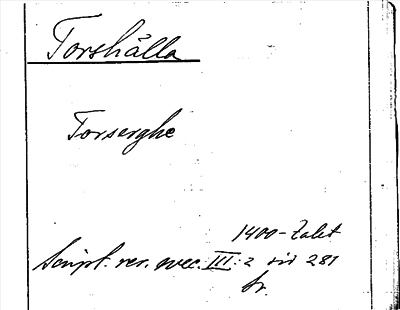 Torshälla
Torserghe
1400-talet
Script. rer. svec. III:2 sid 281
br.